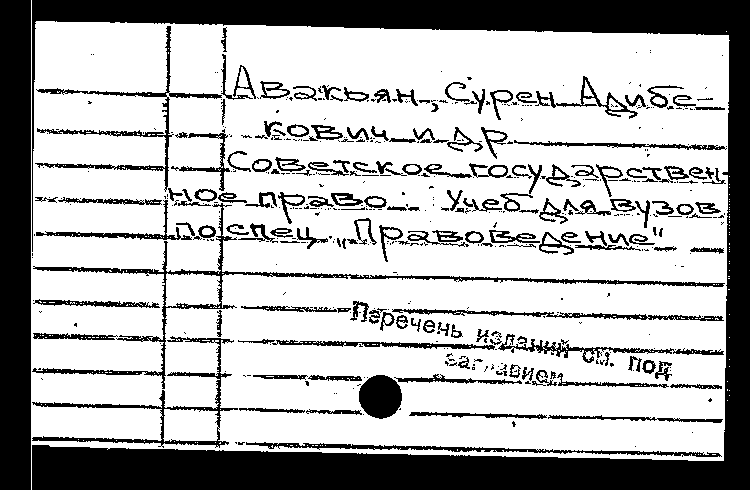 Авакьян, Сурен Адибе-
кович и др
Советское государствен-
ное право. Учеб для вузов
по спец. „Правоведение"
Перечень изданий см. под
заглавием